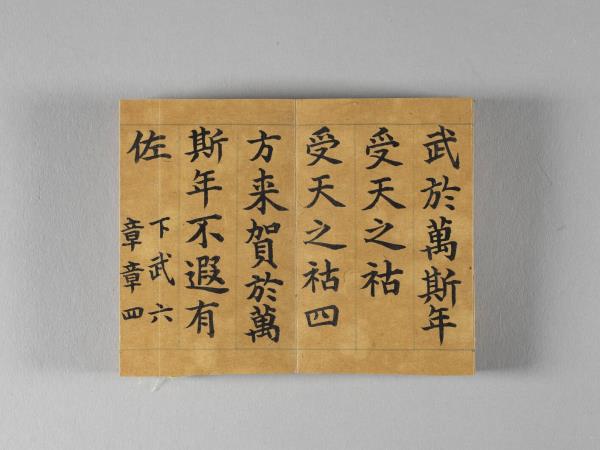 武於萬斯年
受天之祜
受天之祜四
方来賀於萬
斯年不遐有
佐
下武六
章章四